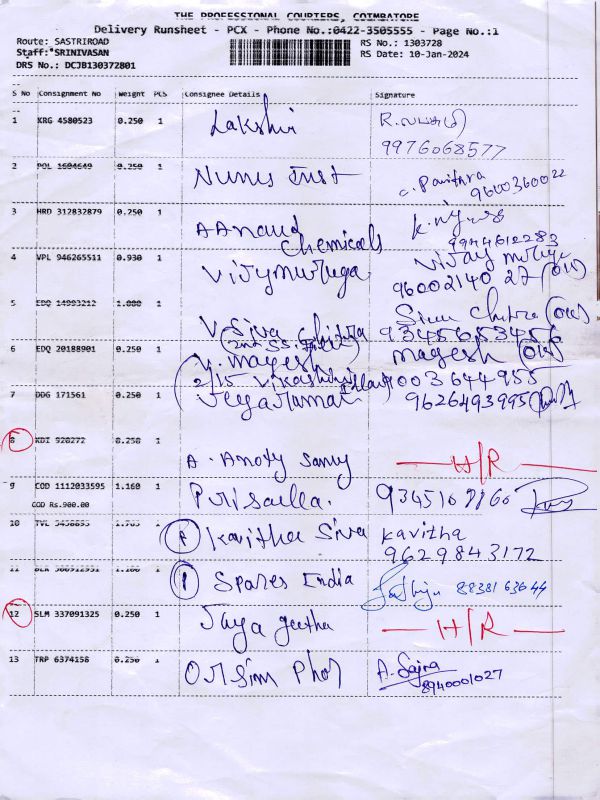 THE PROFESSIONAL COURIERS, COIMBATORE
Delivery Runsheet - PCX - Phone No.:0422-3505555 - Page No.:1
Route: SASTRIROAD
RS No.: 1303728
Staff:*SRINIVASAN
RS Date: 10-Jan-2024
DRS No.: DCJB130372801
S No Consignment No Weight PCS Consignee Details Signature
1 KRG 4580523 0.250 1 Lakshmi R.லட்சுமி
9976068577
2 POL 1604649 0.250 1 Nunus Trust C. Pavithra
9600360022
3 HRD 312832879 0.250 1 A Anand
Chemicals 9944612283
4 VPL 946265511 0.930 1 Vijymuruga Vijay
96002140 27 (
5 EDQ 14993212 1.000 1 V Siva Chitra Siva Chitra
(2nd SS. 9345653456
6 EDQ 20188901 0.250 1 V. Magesh Magesh
2/15 9003644955
7 DDG 171561 0.250 1 Jegaraman 9626493995
8 KDI 928272 0.250 1 A. Anoty Samy H/R
9 COD 1112033595 1.160 1 Prisailla.
COD Rs.900.00
10 TVL 1 (P) Kavitha Siva Kavitha
9629843172
11 1 (P) Spares India 8838163644
12 SLM 337091325 0.250 1 Jaya geetha H/R
13 TRP 6374158 0.250 1 Orison Phar A. Sajna
8940001027